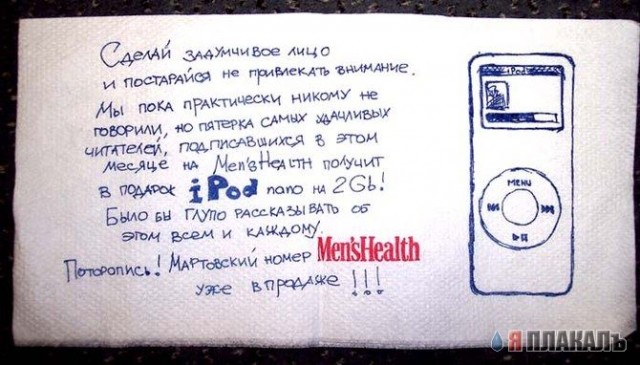 Сделай задумчивое лицо
и постарайся не привлекать внимание.
Мы пока практически никому не
говорили, но пятерка самых удачливых
читателей, подписавшихся в этом
месяце на Men'sHealth получит
в подарок iPod nano на 2Gb!
Было бы глупо рассказывать об
этом всем и каждому.
Поторопись! Мартовский номер Men'sHealth
уже в продаже !!!
iPod
MENU
ЯПЛАКАЛЪ